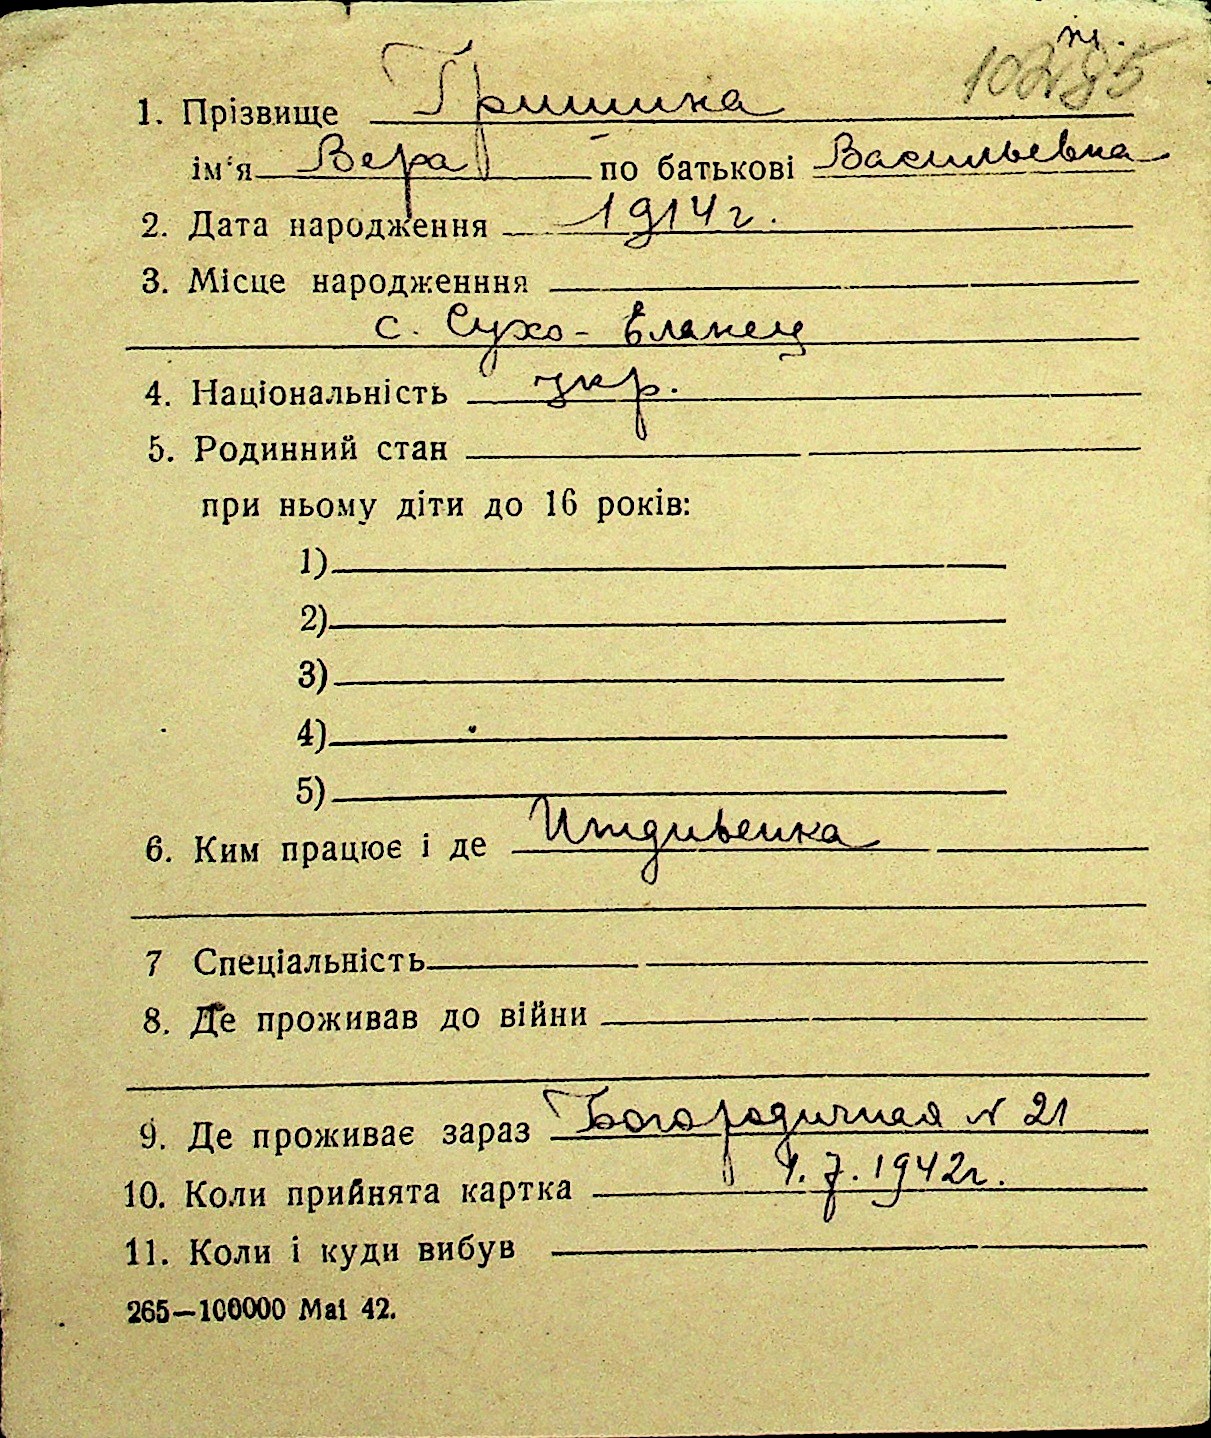 102785
1. Прізвище Гришина
ім'я Вера по батькові Васильевна
2. Дата народження 1914 г.
3. Місце народженння
с. Сухо-Еланец
4. Національність укр.
5. Родинний стан
при ньому діти до 16 років:
1)
2)
3)
4)
5)
6. Ким працює і де Иждивенка
7 Спеціальність
8. Де проживав до війни
9. Де проживає зараз Богородичная N 21
10. Коли прийнята картка 1.7.1942г.
11. Коли і куди вибув
265—100000 Mai 42.